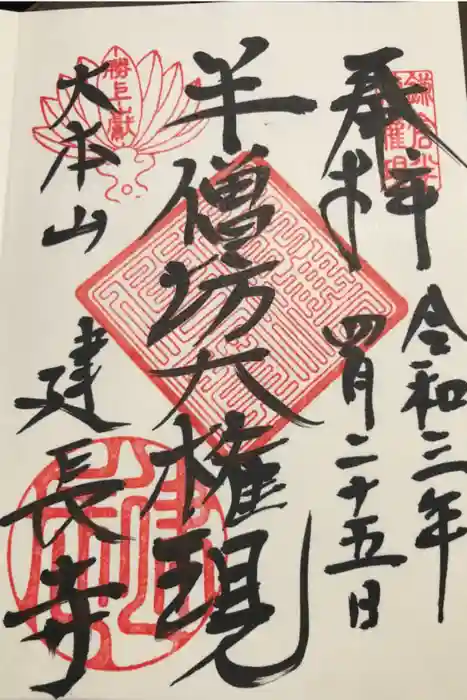 奉拝
令和三年
四月二十五日
半僧坊大権現
大本山
建長寺